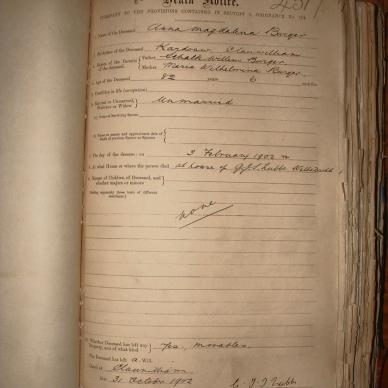 Death Notice.
PURSUANT TO THE PROVISIONS CONTAINED IN SECTION 9, ORDINANCE No. 104
1. Name of the Deceased Anna Magdalena Burger
2. Birthplace of the Deceased Clanwilliam
3. Names of the Parents of the deceased. Father Schalk Willem Burger
Mother Maria Wilhelmina Burger
4. Age of the Deceased 82 years 6 months
5. Condition in life (occupation)
6. Married or Unmarried, Widower or Widow Unmarried
(a) Name of Surviving Spouse
(b) Name or names and approximate date of death of previous Spouse or Spouses
7. The day of the decease: on 3 February 1902
8. At what House or where the person died at house of
9. Names of Children of Deceased, and whether majors or minors
(Stating separately those born of different marriages)
none
10. Whether Deceased has left any Property, and of what kind Yes, movables.
The Deceased has left a Will.
Dated at Clanwilliam
this 31 October 1902